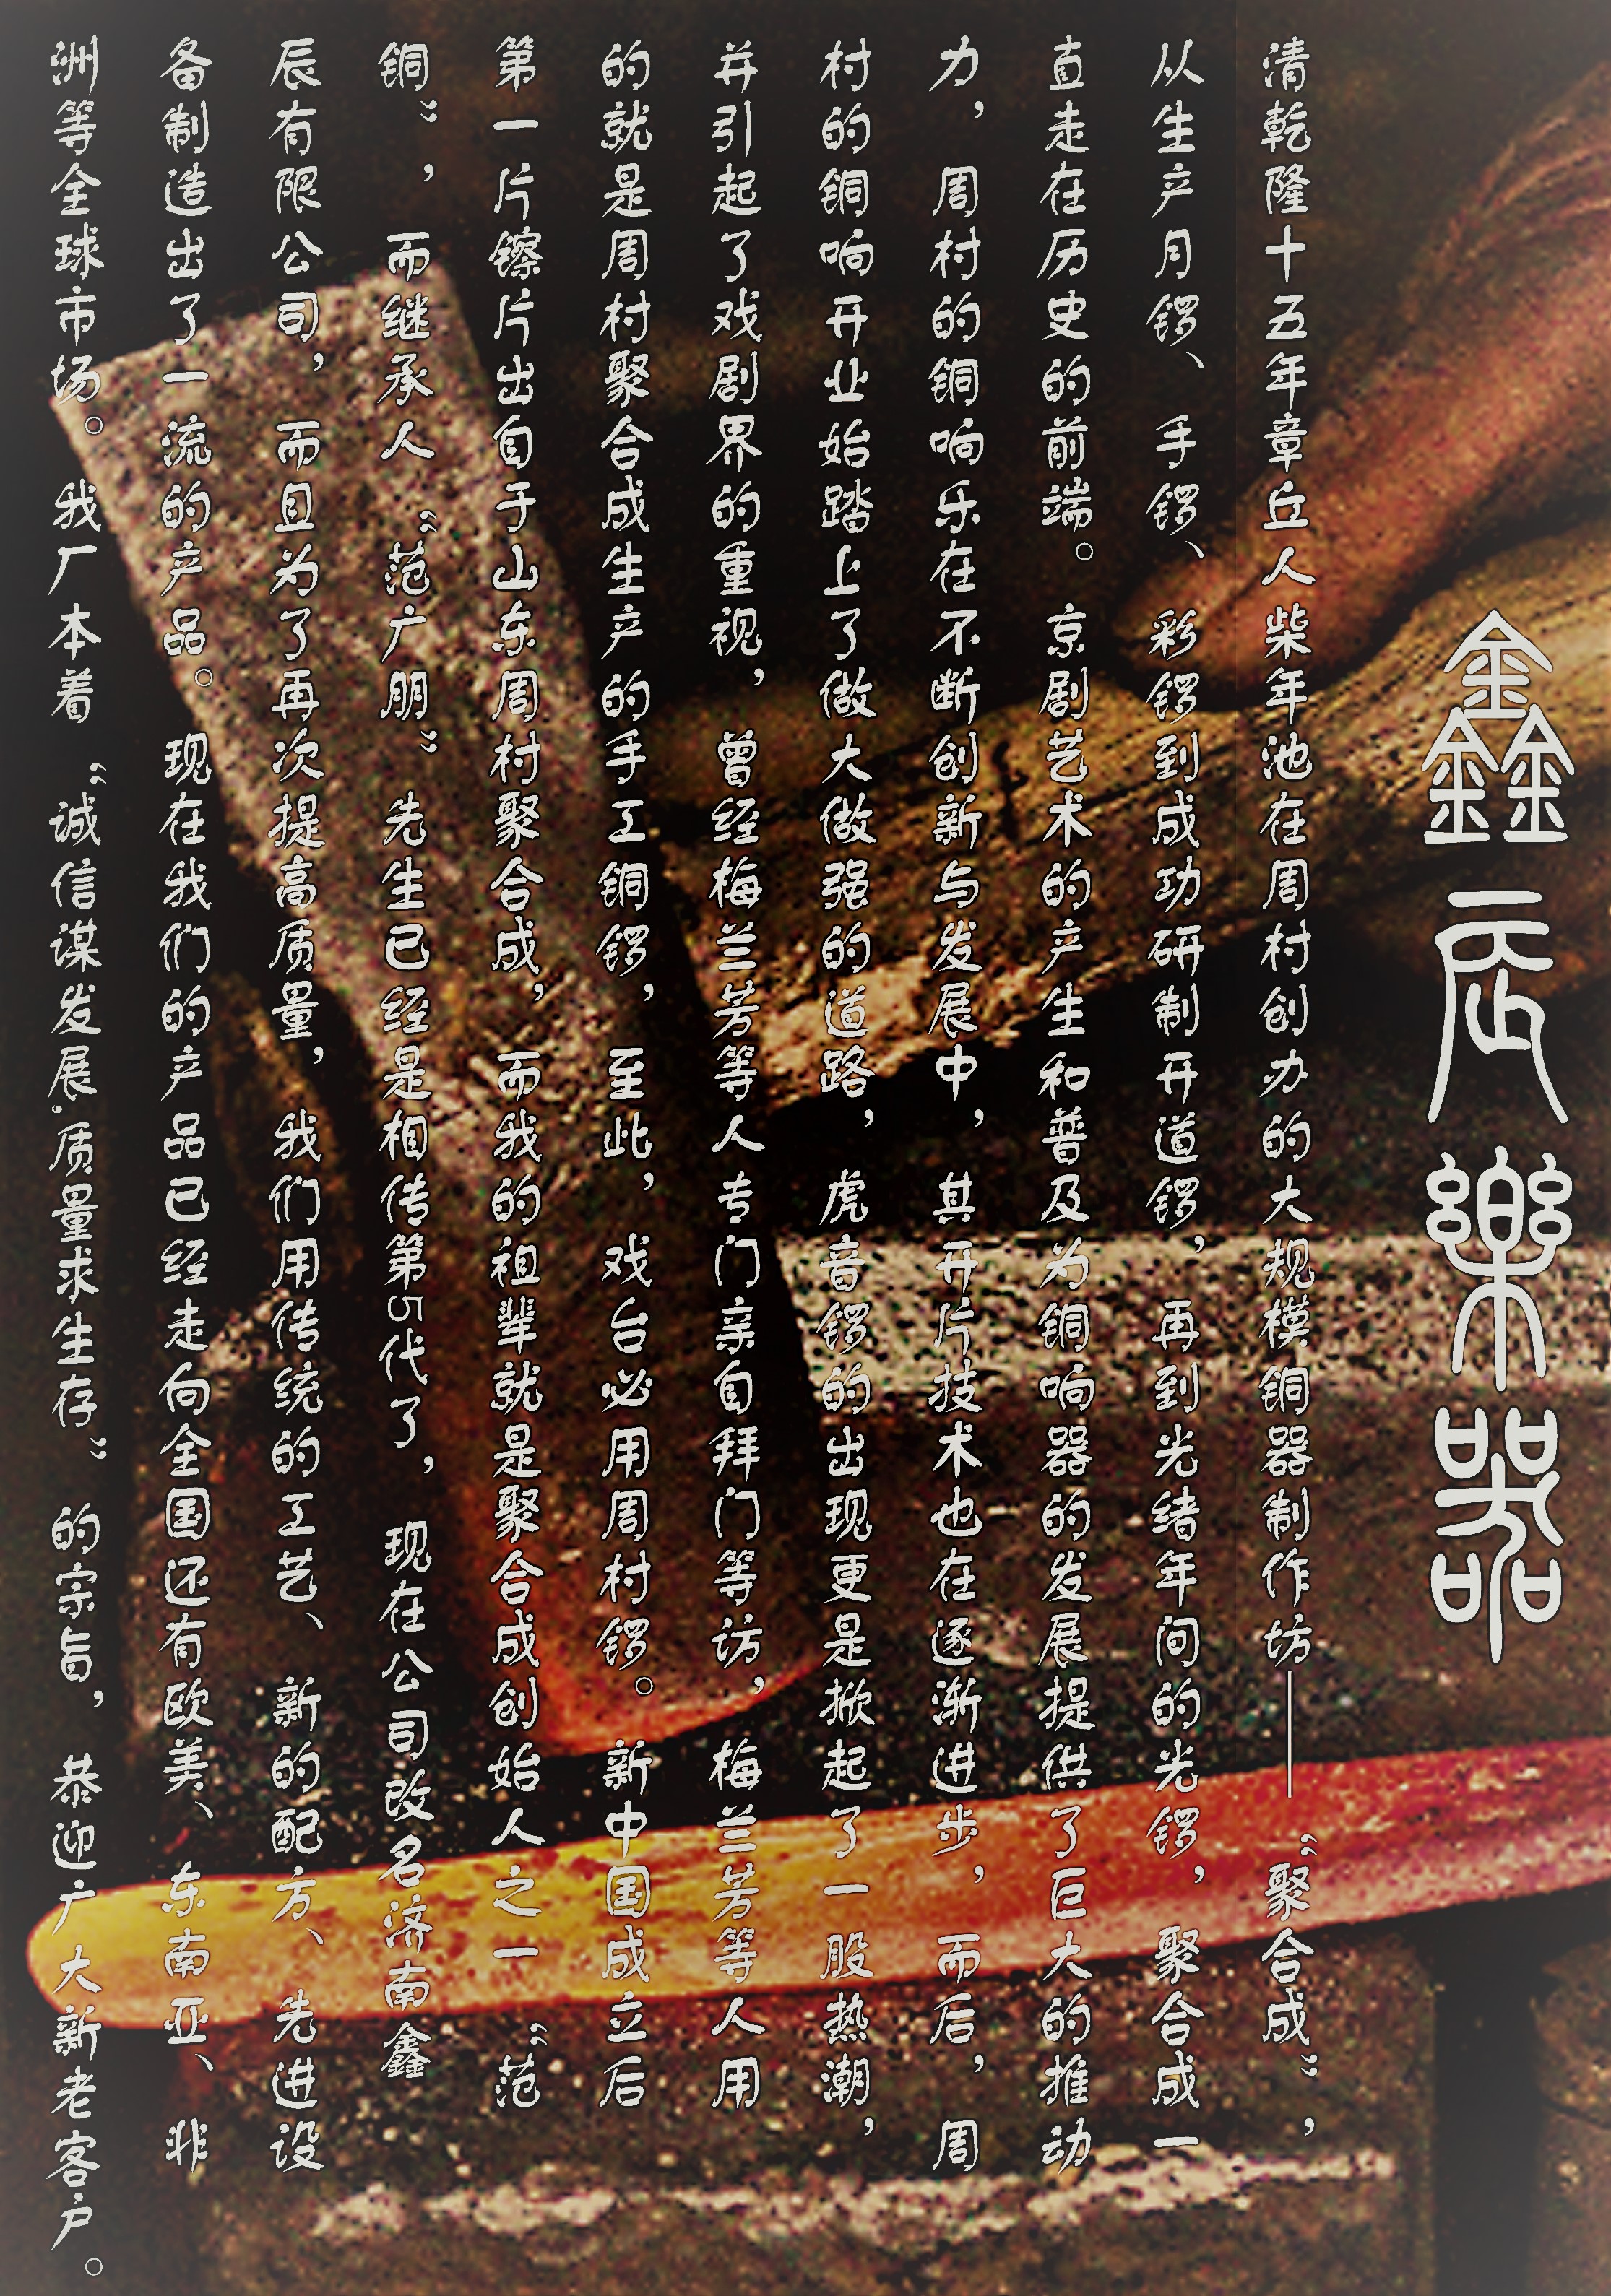 鑫辰樂器
清乾隆十五年章丘人柴年池在周村创办的大规模铜器制作坊——“聚合成”，
从生产月锣、手锣、彩锣到成功研制开道锣，再到光绪年间的光锣，聚合成一
直走在历史的前端。京剧艺术的产生和普及为铜响器的发展提供了巨大的推动
力，周村的铜响乐在不断创新与发展中，其开片技术也在逐渐进步，而后，周
村的铜响开业始踏上了做大做强的道路，虎音锣的出现更是掀起了一股热潮，
并引起了戏剧界的重视，曾经梅兰芳等人专门亲自拜门等访，梅兰芳等人用
的就是周村聚合成生产的手工铜锣，至此，戏台必用周村锣。新中国成立后
第一片镲片出自于山东周村聚合成，而我的祖辈就是聚合成创始人之一“范
铜”，而继承人“范广朋”先生已经是相传第5代了，现在公司改名济南鑫
辰有限公司，而且为了再次提高质量，我们用传统的工艺、新的配方、先进设
备制造出了一流的产品。现在我们的产品已经走向全国还有欧美、东南亚、非
洲等全球市场。我厂本着“诚信谋发展.质量求生存”的宗旨，恭迎广大新老客户。